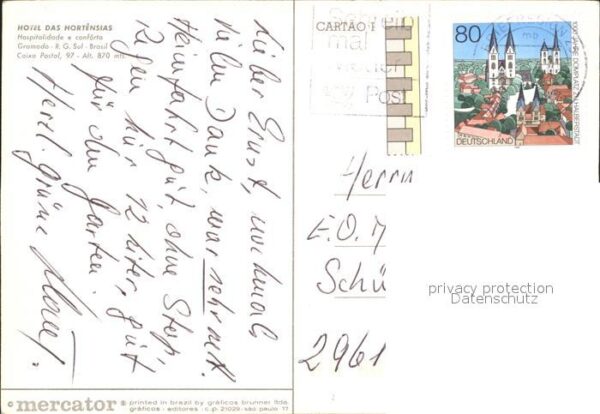 HOTEL DAS HORTÊNSIAS
Hospitalidade e confôrto
Gramado - R. G. Sul - Brasil
Caixa Postal, 97 - Alt. 870 mts.
Lieber Ernst, nochmals
vielen Dank, war sehr nett.
Heimfahrt gut, ohne Stop,
Regen nur 12 Liter, gut
für den Garten.
Herzl. Grüsse
CARTÃO
Schreib
mal
wieder
Post
80
1000 JAHRE DOMPLATZ ZU HALBERSTADT
DEUTSCHLAND
Herrn
E.O.
Schü
2961
privacy protection
Datenschutz
© mercator ® printed in brazil by gráficos brunner ltda.
gráficos - editores - c.p. 21029 - são paulo 17